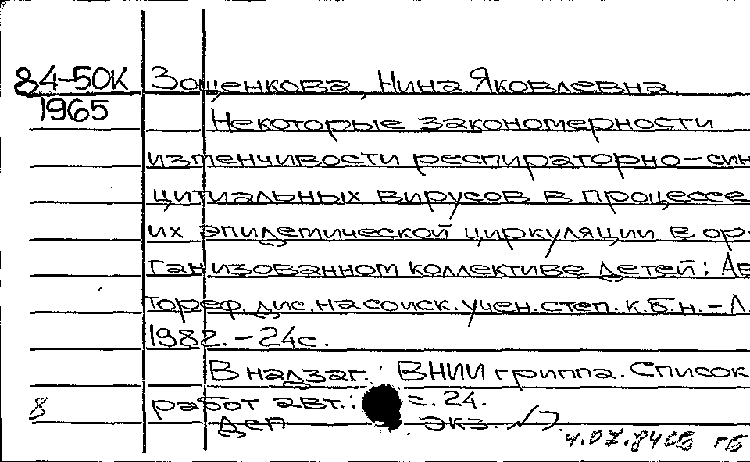 84-50К Зощенкова, Нина Яковлевна
1965
Некоторые закономерности
изменчивости респираторно-син
цитиальных вирусов в процессе
их эпидемической циркуляции в ор-
ганизованном коллективе детей: Ав
тореф. дис. на соиск. учен. степ. к.б.н. - Л
1982. - 24с.
В надзаг.: ВНИИ гриппа. Список
8 работ авт.: с. 24.
Деп экз.
4.07.84